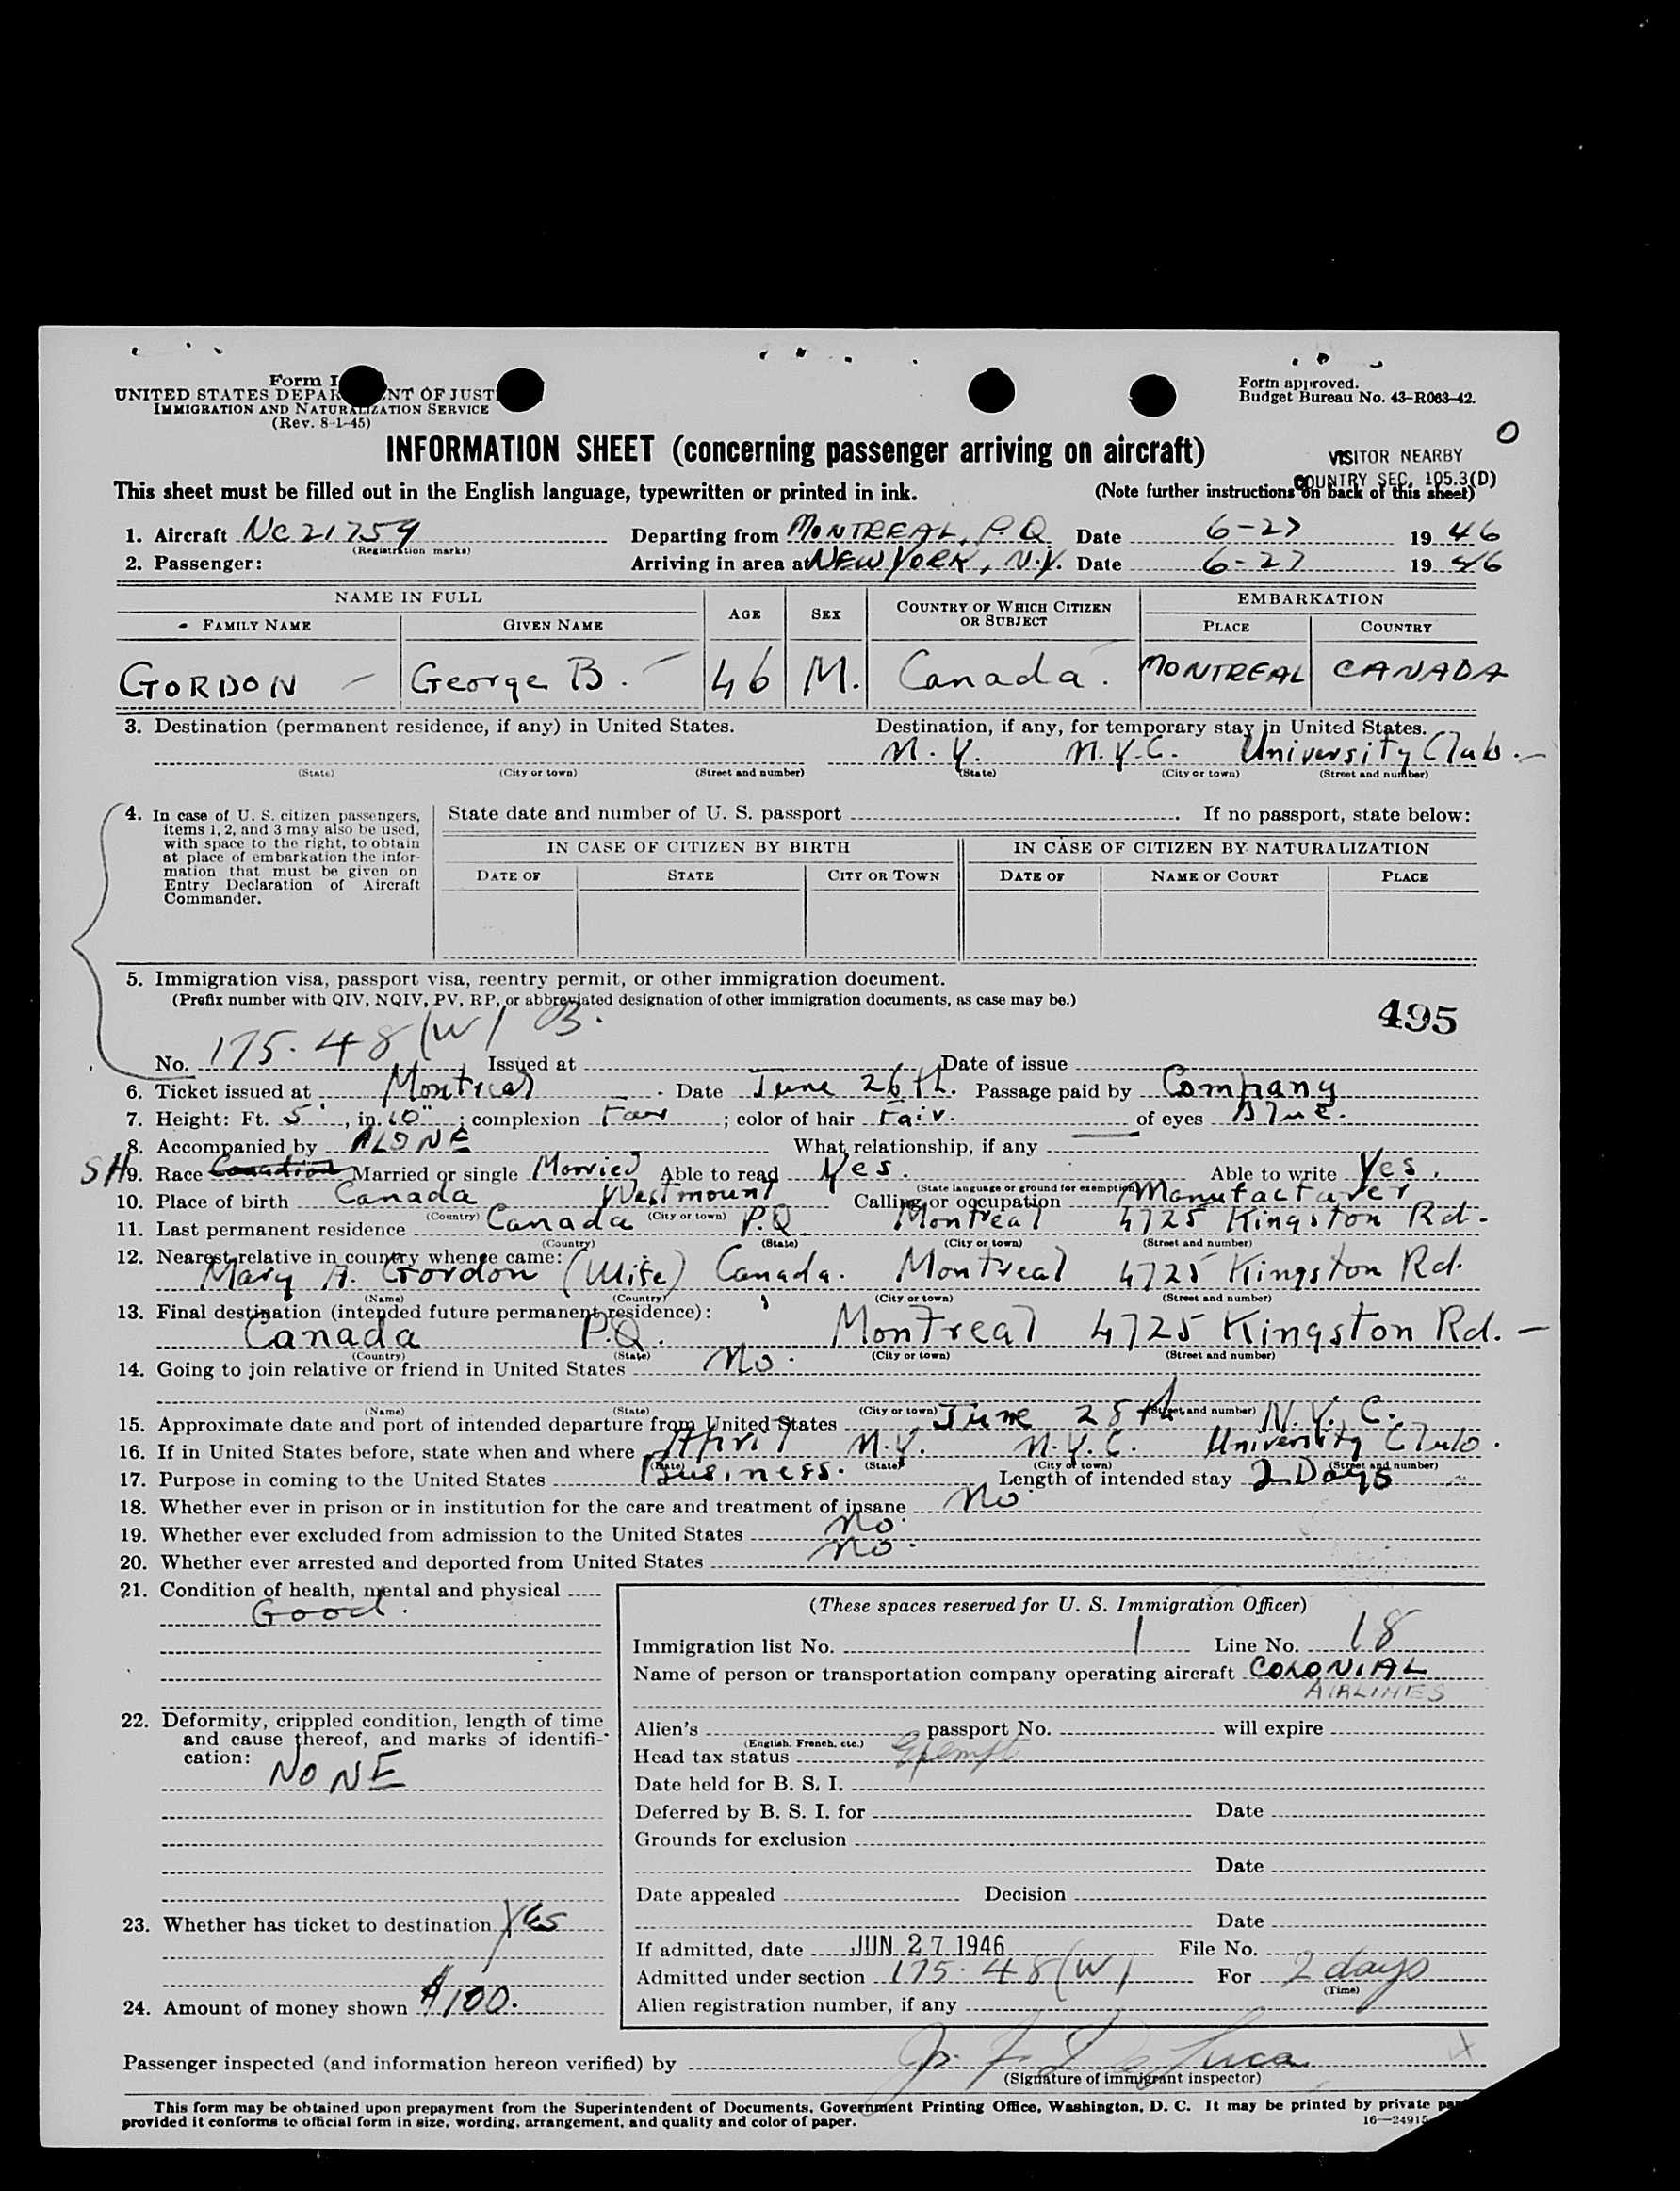 Form I
UNITED STATES DEPAR NT OF JUST
IMMIGRATION AND NATURALIZATION SERVICE
(Rev. 8-1-45)
Form approved.
Budget Bureau No. 43-R063-42.
O
INFORMATION SHEET (concerning passenger arriving on aircraft)
VISITOR NEARBY
COUNTRY SEC. 105.3(D)
This sheet must be filled out in the English language, typewritten or printed in ink. (Note further instructions on back of this sheet)
1. Aircraft NC21759 Departing from MONTREAL, P.Q Date 6-27 19 46
(Registration marks)
2. Passenger: Arriving in area at NEW YORK, N.Y. Date 6-27 19 46
NAME IN FULL AGE SEX COUNTRY OF WHICH CITIZEN OR SUBJECT EMBARKATION
FAMILY NAME GIVEN NAME PLACE COUNTRY
GORDON — George B. — 46 M. Canada. MONTREAL CANADA
3. Destination (permanent residence, if any) in United States. Destination, if any, for temporary stay in United States.
N.Y. N.Y.C. University Club. —
(State) (City or town) (Street and number) (State) (City or town) (Street and number)
4. In case of U. S. citizen passengers, items 1, 2, and 3 may also be used, with space to the right, to obtain at place of embarkation the information that must be given on Entry Declaration of Aircraft Commander.
State date and number of U. S. passport . If no passport, state below:
IN CASE OF CITIZEN BY BIRTH IN CASE OF CITIZEN BY NATURALIZATION
DATE OF STATE CITY OR TOWN DATE OF NAME OF COURT PLACE
5. Immigration visa, passport visa, reentry permit, or other immigration document.
(Prefix number with QIV, NQIV, PV, RP, or abbreviated designation of other immigration documents, as case may be.)
495
No. 175.48(W) B. Issued at Date of issue
6. Ticket issued at Montreal Date June 26th. Passage paid by Company
7. Height: Ft. 5', in. 10"; complexion Fair; color of hair Fair. of eyes Blue.
8. Accompanied by ALONE What relationship, if any —
SH 9. Race Canadian Married or single Married Able to read Yes. Able to write Yes.
(State language or ground for exemption)
10. Place of birth Canada Westmount Calling or occupation Manufacturer
(Country) (City or town)
11. Last permanent residence Canada P.Q Montreal 4725 Kingston Rd-
(Country) (State) (City or town) (Street and number)
12. Nearest relative in country whence came:
Mary A. Gordon (Wife) Canada. Montreal 4725 Kingston Rd.
(Name) (Country) (City or town) (Street and number)
13. Final destination (intended future permanent residence):
Canada P.Q. Montreal 4725 Kingston Rd. —
(Country) (State) (City or town) (Street and number)
14. Going to join relative or friend in United States No.
(Name) (State) (City or town) (Street and number)
15. Approximate date and port of intended departure from United States June 28th N.Y.C.
16. If in United States before, state when and where April N.Y. N.Y.C. University Club.
(Date) (State) (City or town) (Street and number)
17. Purpose in coming to the United States Business. Length of intended stay 2 Days
18. Whether ever in prison or in institution for the care and treatment of insane No.
19. Whether ever excluded from admission to the United States No.
20. Whether ever arrested and deported from United States No.
21. Condition of health, mental and physical
Good.
22. Deformity, crippled condition, length of time and cause thereof, and marks of identification:
NONE
23. Whether has ticket to destination YES
24. Amount of money shown $100.
(These spaces reserved for U. S. Immigration Officer)
Immigration list No. 1 Line No. 18
Name of person or transportation company operating aircraft COLONIAL
AIRLINES
Alien's passport No. will expire
(English, French, etc.)
Head tax status Exempt
Date held for B. S. I.
Deferred by B. S. I. for Date
Grounds for exclusion
Date
Date appealed Decision
Date
If admitted, date JUN 27 1946 File No.
Admitted under section 175.48(W) For 2 days
(Time)
Alien registration number, if any
Passenger inspected (and information hereon verified) by
(Signature of immigrant inspector)
This form may be obtained upon prepayment from the Superintendent of Documents, Government Printing Office, Washington, D. C. It may be printed by private
provided it conforms to official form in size, wording, arrangement, and quality and color of paper.
16—24915